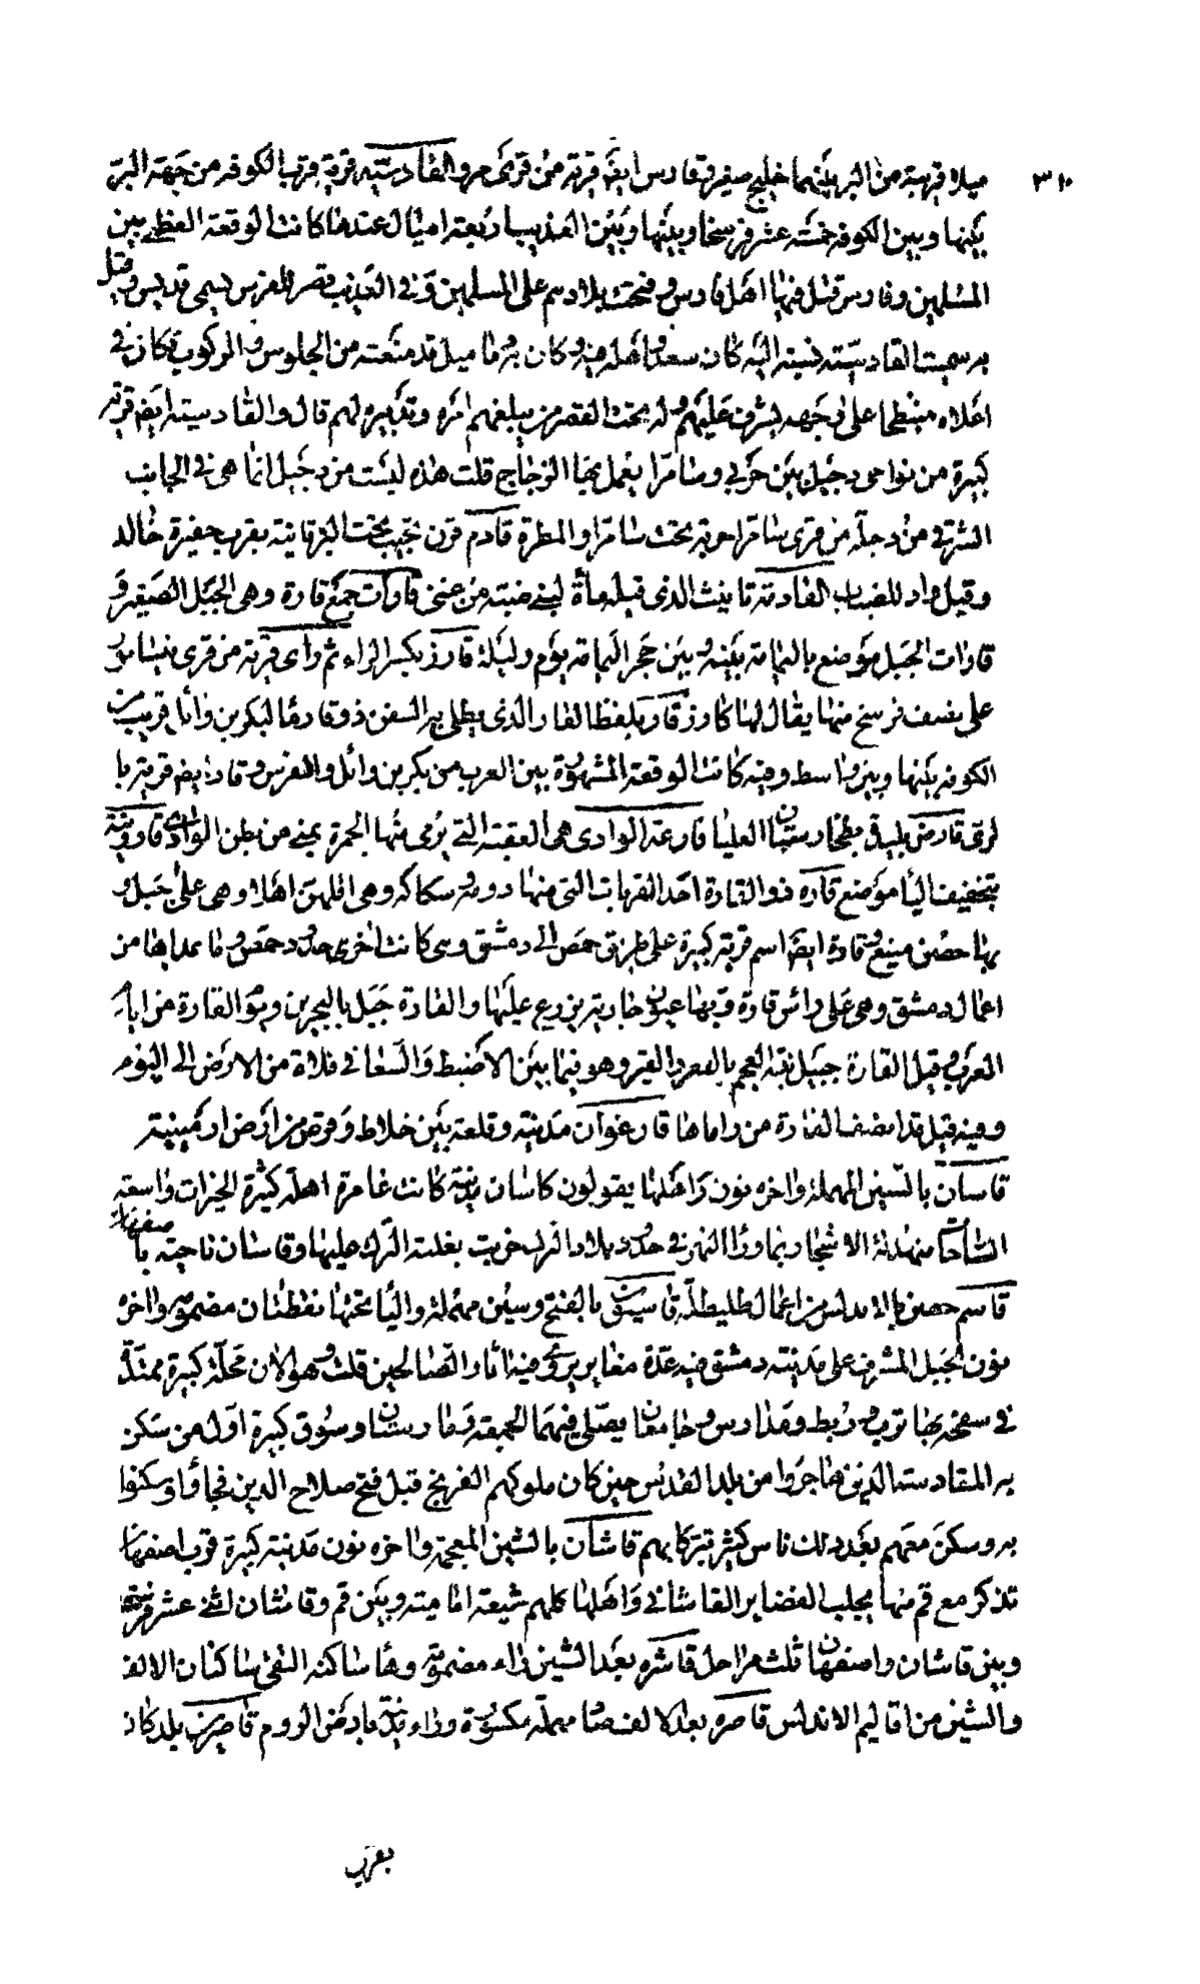 ٣١٠
ميلا قريبة من البر بينهما خليج صغير وقادس ايضا قرية من قرى مرو القادسية قرية قرب الكوفه من جهة البر
بينها وبين الكوفه خمسة عشر فرسخا وبينها وبين العذيب اربعة اميال عندها كانت الوقعة العظمى بين
المسلمين وفارس قتل فيها اهل فارس وفتحت بلادهم على المسلمين وفى العذيب قصر للفرس يسمى قديس وقيل
به سميت القادسيته نسبته اليه كان سعد واهله فيه وكان به دماميل قد منعته من الجلوس والركوب فكان فى
اعلاه منبطحا على وجهه يشرف عليهم وله تحت القصر من يبلغهم امره وتدبيره لهم قال والقادسيته ايضا قرية
كبيرة من نواحى دجيل بين حربى وسامرا يعمل بها الزجاج قلت هذه ليست من دجيل انما هى فى الجانب
الشرقى من دجلة من قرى سامرا خربة تحت سامرا والمطرة قادم قرن بجنب البرقانية بقرب حفيرة خالد
وقيل واد للضباب القادمة تانيث الذى قبله ماءة لبنى ضبته من غنى قارات جمع قارة وهى الجبل الصغير و
قارات الجبل موضع باليمامة بينه وبين حجر اليمامة يوم وليلة قارز بكسر الراء ثم زاى قرية من قرى نيسابور
على نصف فرسخ منها يقال لها كارز قار بلفظ القار الذى يطلى به السفن ذو قار ماء لبكر بن وائل قريب من
الكوفه بينها وبين واسط وفيه كانت الوقعة المشهورة بين العرب من بكر بن وائل والفرس وقار ايضا قرية با
لرى قارض بليدة بطخارستان العليا قارعة الوادى هى العقبة التى يرمى منها الجمرة يمنى من بطن الوادى قاروية
بتخفيف اليا موضع قاره ذو القارة احد القريات التى منها دومة وسكاكه وهى اقلهن اهلا وهى على جبل و
بها حصن منيع وقارة ايضا اسم قرية كبيرة على طريق حمص الى دمشق وهى كانت اخرى حدود حمص وما عداها من
اعمال دمشق وهى على راس قارة وبها عيون جارية يزرع عليها والقارة جبل بالبحرين ويوم القارة من ايام
العرب وقيل القارة جبيل بنته العجم بالقفر والقير وهو فيما بين الاضبط والشعا فى فلاة من الارض الى اليوم
وفيه قيل قد انصف القارة من راماها قارغوان مدينة وقلعة بين خلاط وقرص من ارض ارمينية
قاسان بالسين المهملة واخره نون واهلها يقولون كاسان مدينة كانت عامرة اهلة كثيرة الخيرات واسعة
الساحات متهدلة الاشجار بما وراء النهر فى حدود بلاد الترك خربت بغلبة الترك عليها وقاسان ناحية باصفهان
قاسم حصن بالاندلس من اعمال طليطلة قاسيون بالفتح وسين مهملة واليا تحتها نقطتان مضمومة واخره
نون الجبل المشرف على مدينة دمشق فيه عدة مغاير يروى فيها اثار الصالحين قلت وهو الان محلة كبيرة ممتدة
فى سفحه بها ترب وربط ومدارس وجامعان يصلى فيهما الجمعة ومارستان وسوق كبيرة اول من سكن
به المقادسة الذين هاجروا من بلد القدس حين كان ملوكهم الفرنج قبل فتح صلاح الدين فجاؤا وسكنوا
به وسكن معهم بعد ذلك ناس كثير تبركا بهم قاشان بالشين المعجمة واخره نون مدينة كبيرة قرب اصفهان
تذكر مع قم منها يجلب الغضاير القاشانى واهلها كلهم شيعة امامية وبين قم وقاشان اثنى عشر فرسخا
وبين قاشان واصفهان ثلث مراحل قاشره بعد الشين راء مضمومة وها ساكنة التقى ساكنان الالف
والشين من اقاليم الاندلس قاصره بعد الالف صاد مهملة مكسورة وراء مدينة بارض الروم قاصرين بلد كان
بقرب